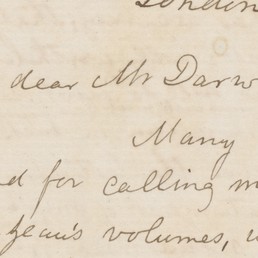 London
dear Mr Darw
Many
d for calling m
Jean's volumes,